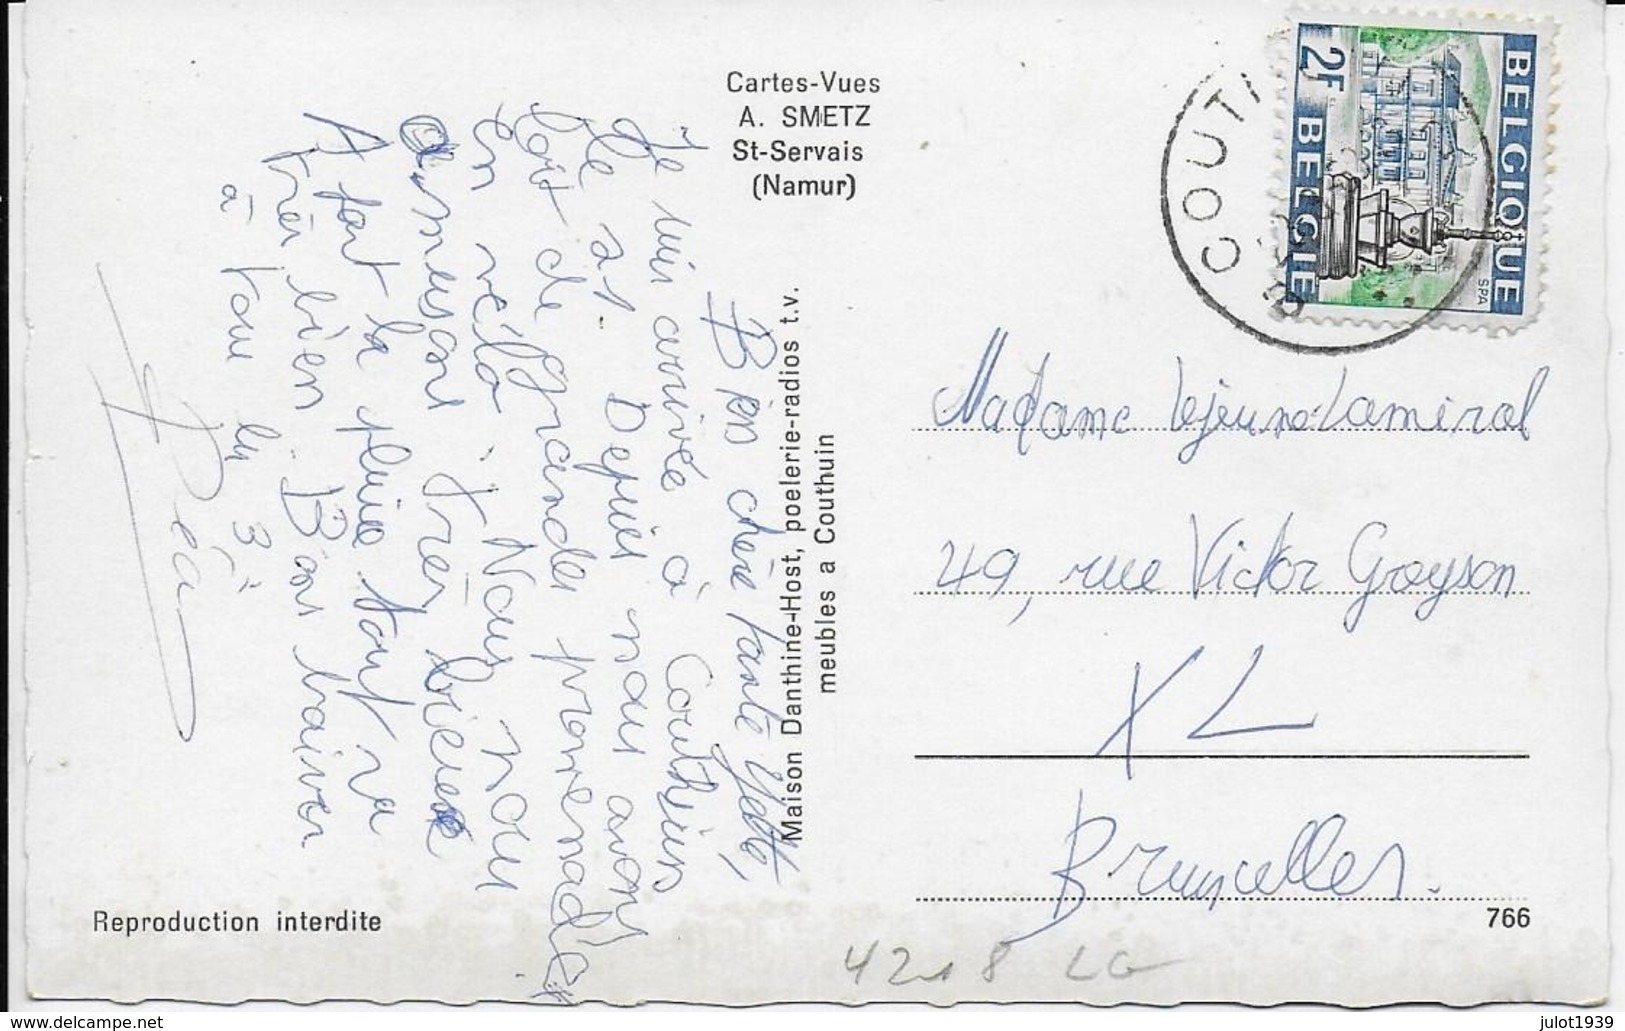 Cartes-Vues
A. SMETZ
St-Servais
(Namur)
BELGIQUE
2F BELGIE
SPA
COUT
Bien chère tante Yette,
Je suis arrivée à Couthuin
le 21. Depuis nous avons
fait de grandes promenades
en vélo. Nous nous
amusons très bien
A part la pluie tout va
très bien. Bons baisers
à tous les 3.
Maison Danthine-Host, poelerie-radios t.v.
meubles a Couthuin
Madame Lejeune-Lamiral
49, rue Victor Greyson
XL
Bruxelles.
Reproduction interdite
766
4218 LG
delcampe.net
julot1939